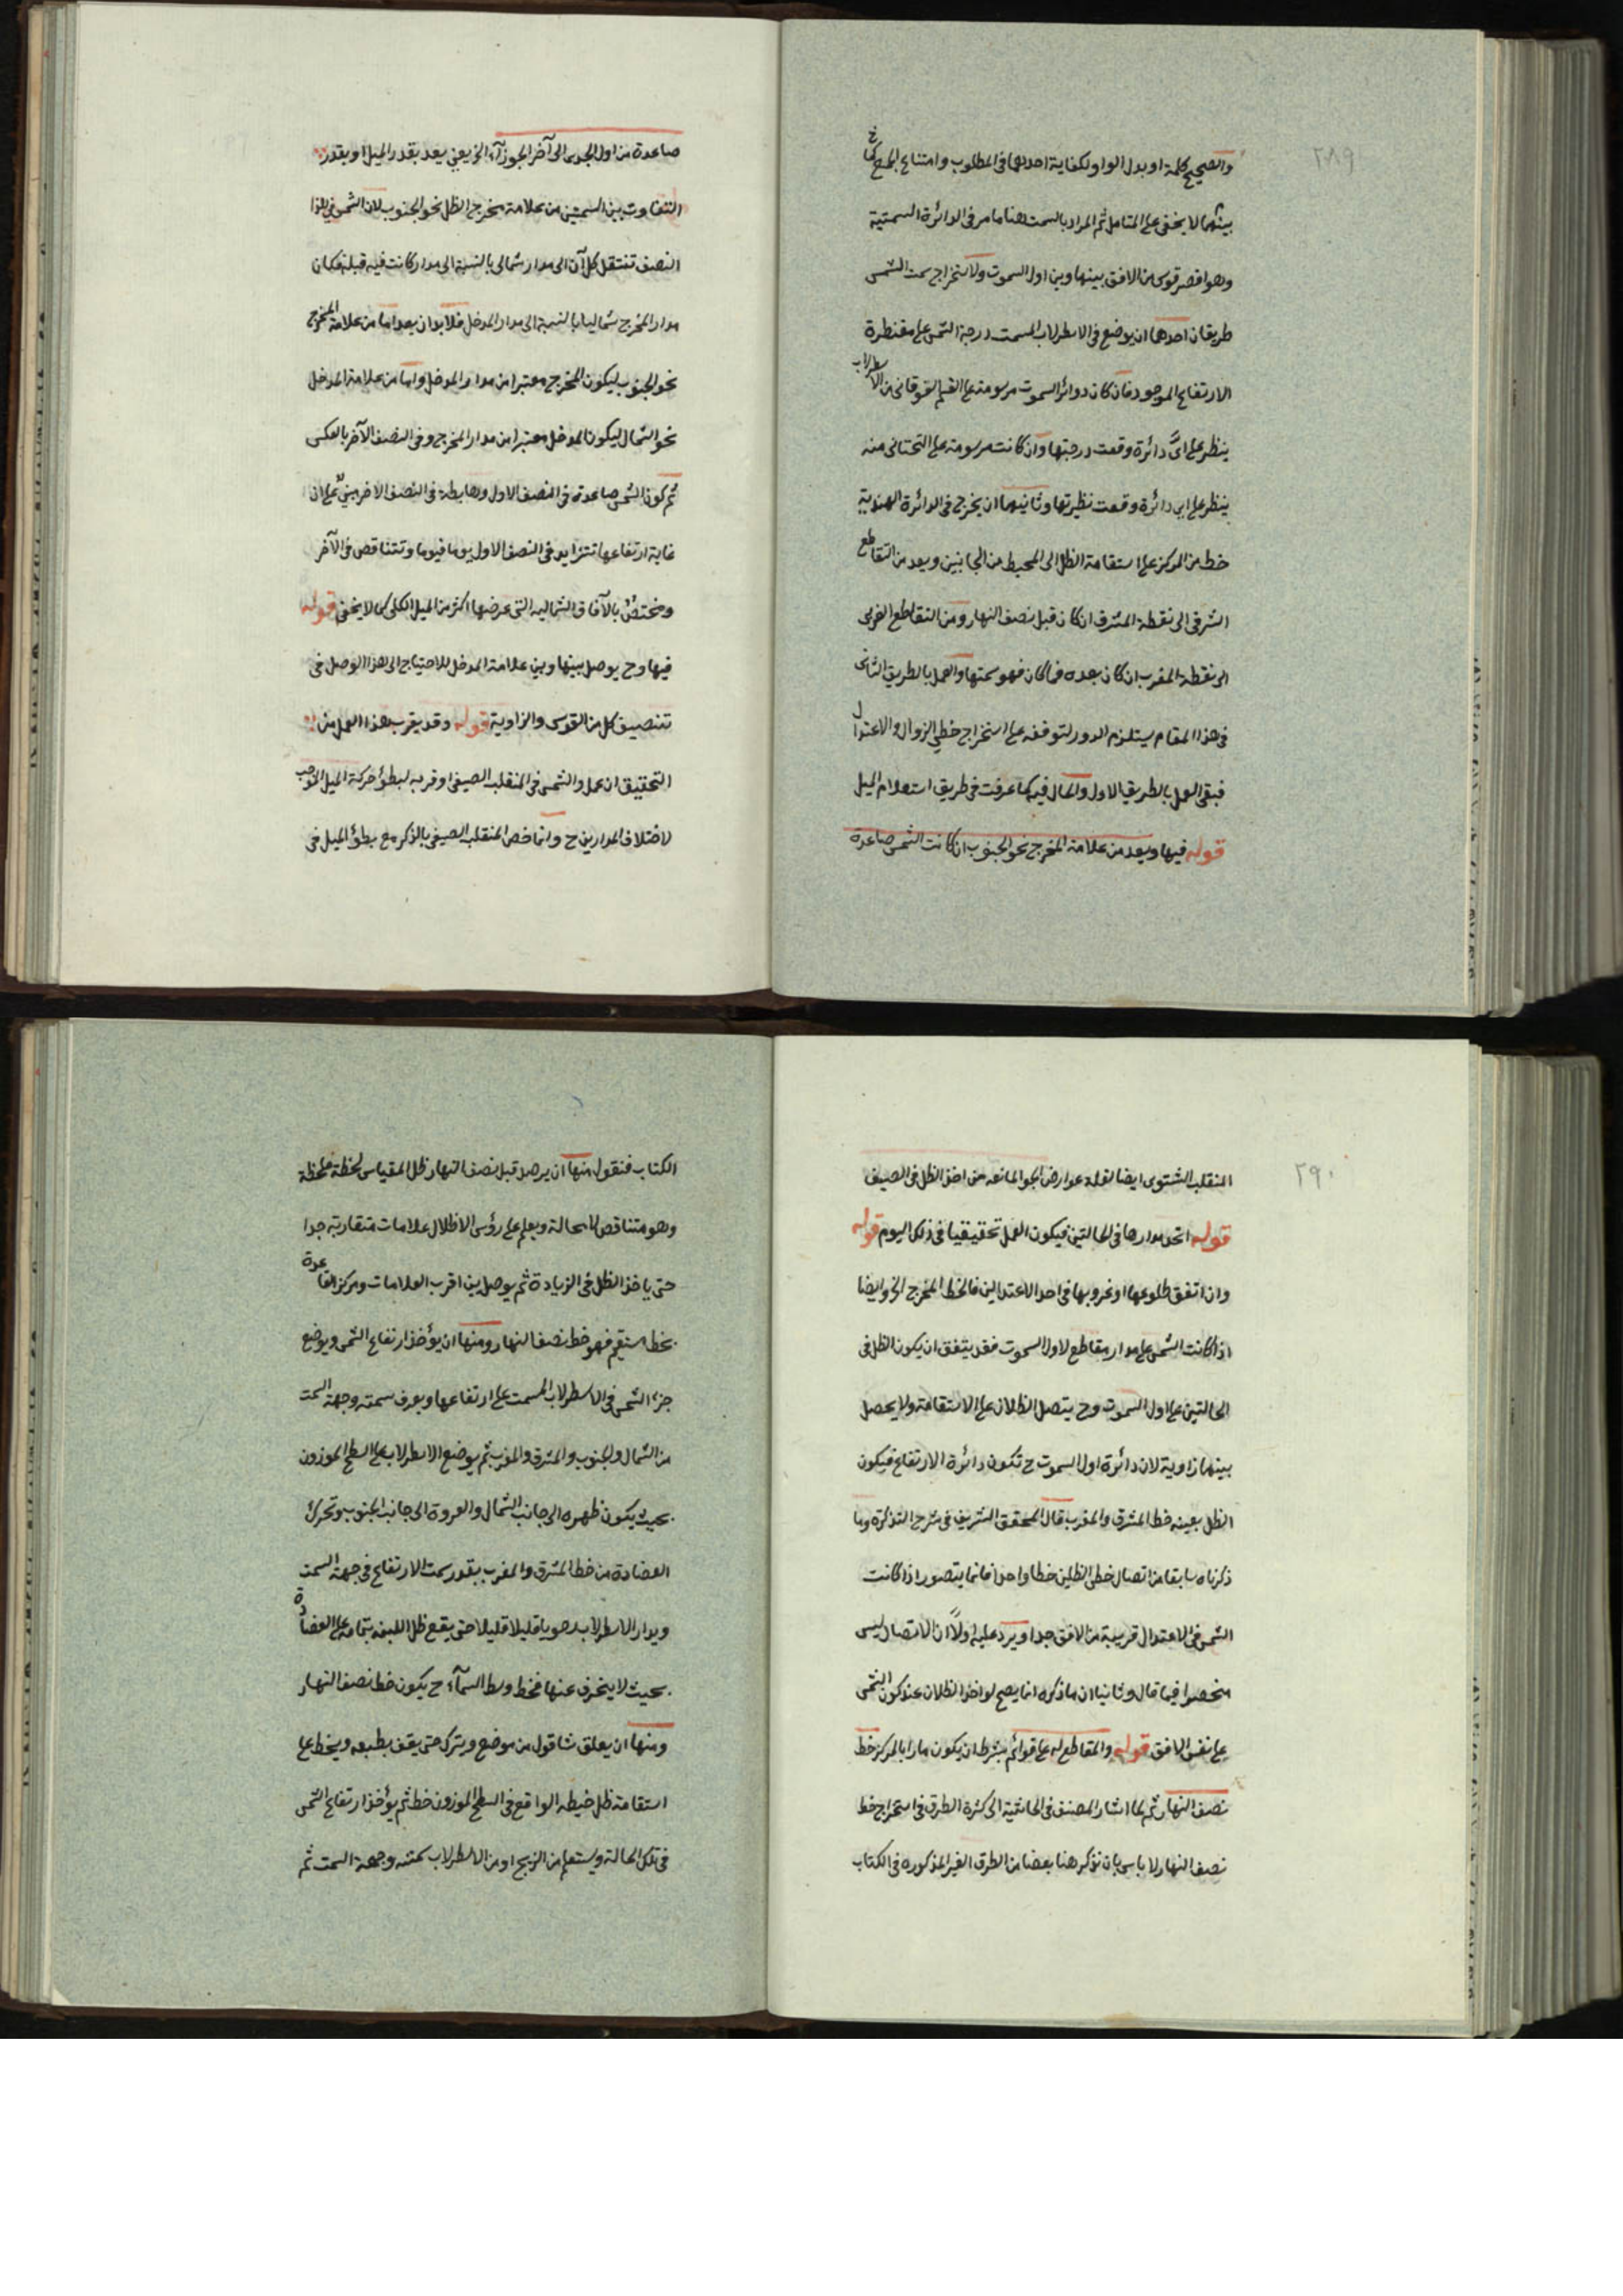 ٢٨٩
والصحيح كلمة او بدل الواو لكفاية احدهما فى المطلوب وامتناع الجمع كما
بينهما لا يخفى على المتامل ثم المراد بالسمت هنا ما مر فى الدائرة السمتية
وهو اقصر قوس من الافق بينها وبين اول السموت ولاستخراج سمت الشمس
طريقان احدهما ان يوضع فى الاسطرلاب المسمت درجة الشمس على مقنطرة
الارتفاع الموجود فان كان دوائر السموت مرسومة على القسم الفوقانى من الاسطرلاب
ينظر على اىّ دائرة وقعت درجتها وان كانت مرسومة على التحتانى منه
ينظر على اى دائرة وقعت نظيرتها وثانيهما ان يخرج فى الدائرة الهندية
خط من المركز على استقامة الظل الى المحيط من الجانبين ويعد من التقاطع
الشرقى الى نقطة المشرق ان كان قبل نصف النهار ومن التقاطع الغربى
الى نقطة المغرب ان كان بعده فما كان فهو سمتها والعمل بالطريق الثانى
فى هذا المقام يستلزم الدور لتوقفه على استخراج خطى الزوال والاعتدال
فبقى العمل بالطريق الاول والحال فيه كما عرفت فى طريق استعلام الميل
قوله فيها ويعد من علامة المخرج نحو الجنوب ان كانت الشمس صاعدة
صاعدة من اول الجدى الى آخر الجوزآء الخ يعنى يعد بقدر الميل او بقدر
التفاوت بين السمتين من علامة مخرج الظل نحو الجنوب لان الشمس فى هذا
النصف تنتقل كل آن الى مدار شمالى بالنسبة الى مدار كانت فيه قبله فكان
مدار المخرج شماليا بالنسبة الى مدار المدخل فلا بد ان يعد اما من علامة المخرج
نحو الجنوب ليكون المخرج معتبرا من مدار المدخل واما من علامة المدخل
نحو الشمال ليكون المدخل معتبرا من مدار المخرج وفى النصف الآخر بالعكس
ثم كون الشمس صاعدة فى النصف الاول وهابطة فى النصف الاخر مبنىّ على ان
غاية ارتفاعها تتزايد فى النصف الاول يوما فيوما وتتناقص فى الآخر
ومختصٌ بالآفاق الشماليه التى عرضها اكثر من الميل الكلى كما لا يخفى قوله
فيها وح يوصل بينها وبين علامة المدخل للاحتياج الى هذا الوصل فى
تنصيف كل من القوس والزاوية قوله وقد يقرب هذا العمل من
التحقيق ان عمل والشمس فى المنقلب الصيفى او قربه لبطؤ حركة الميل الموجب
لاختلاف المدارين ح وانما خص المنقلب الصيفى بالذكر مع بطؤ الميل فى
٢٩٠
المنقلب الشتوى ايضا لقلة عوارض الجو المانعه من اخذ الظل فى الصيف
قوله اتحد مدارها فى الحالتين فيكون العمل تحقيقيا فى ذلك اليوم قوله
وان اتفق طلوعها او غروبها فى احد الاعتدالين فالخط المخرج الخ وايضا
اذا كانت الشمس على مدار مقاطع لاول السموت فقد يتفق ان يكون الظل فى
الحالتين على اول السموت وح يتصل الظلان على الاستقامة ولا يحصل
بينهما زاوية لان دائرة اول السموت ح تكون دائرة الارتفاع فيكون
الظل بعينه خط المشرق والمغرب قال المحقق الشريف فى شرح التذكرة وما
ذكرناه سابقا من اتصال خطى الظلين خطا واحدا فانما يتصور اذا كانت
الشمس فى الاعتدال قريبة من الافق جدا ويرد عليه اولاً ان الاتصال ليس
منحصرا فيما قال وثانيا ان ما ذكره انما يصح لو اخذ الظلان عند كون الشمس
على نفس الافق قوله والمقاطع له على قوائم بشرط ان يكون مارا بالمركز خط
نصف النهار ثم لما اشار المصنف فى الحاشية الى كثرة الطرق فى استخراج خط
نصف النهار لا باس بان نذكر هنا بعضا من الطرق الغير المذكوره فى الكتاب
الكتاب فنقول منها ان يرصد قبل نصف النهار ظل المقياس لحظة فلحظة
وهو متناقص لا محالة ويعلم على رؤس الاظلال علامات متقاربة جدا
حتى ياخذ الظل فى الزيادة ثم يوصل بين اقرب العلامات ومركز القاعدة
بخط مستقيم فهو خط نصف النهار ومنها ان يؤخذ ارتفاع الشمس ويوضع
جزء الشمس فى الاسطرلاب المسمت على ارتفاعها ويعرف سمته وجهة السمت
من الشمال والجنوب والمشرق والمغرب ثم يوضع الاسطرلاب على السطح الموزون
بحيث يكون ظهره الى جانب الشمال والعروة الى جانب الجنوب وتحرك
العضادة من خط المشرق والمغرب بقدر سمت الارتفاع فى جهة السمت
ويدار الاسطرلاب قليلا قليلا حتى يقع ظل اللبنه بتمامه على العضادة
بحيث لا ينحرف عنها فخط وسط السمآء ح يكون خط نصف النهار
ومنها ان يعلق شاقول من موضع ويترك حتى يقف بطبعه ويخط على
استقامة ظل خيطه الواقع فى السطح الموزون خط ثم يؤخذ ارتفاع الشمس
فى تلك الحالة ويستعلم من الزيج او من الاسطرلاب سمته وجهة السمت ثم